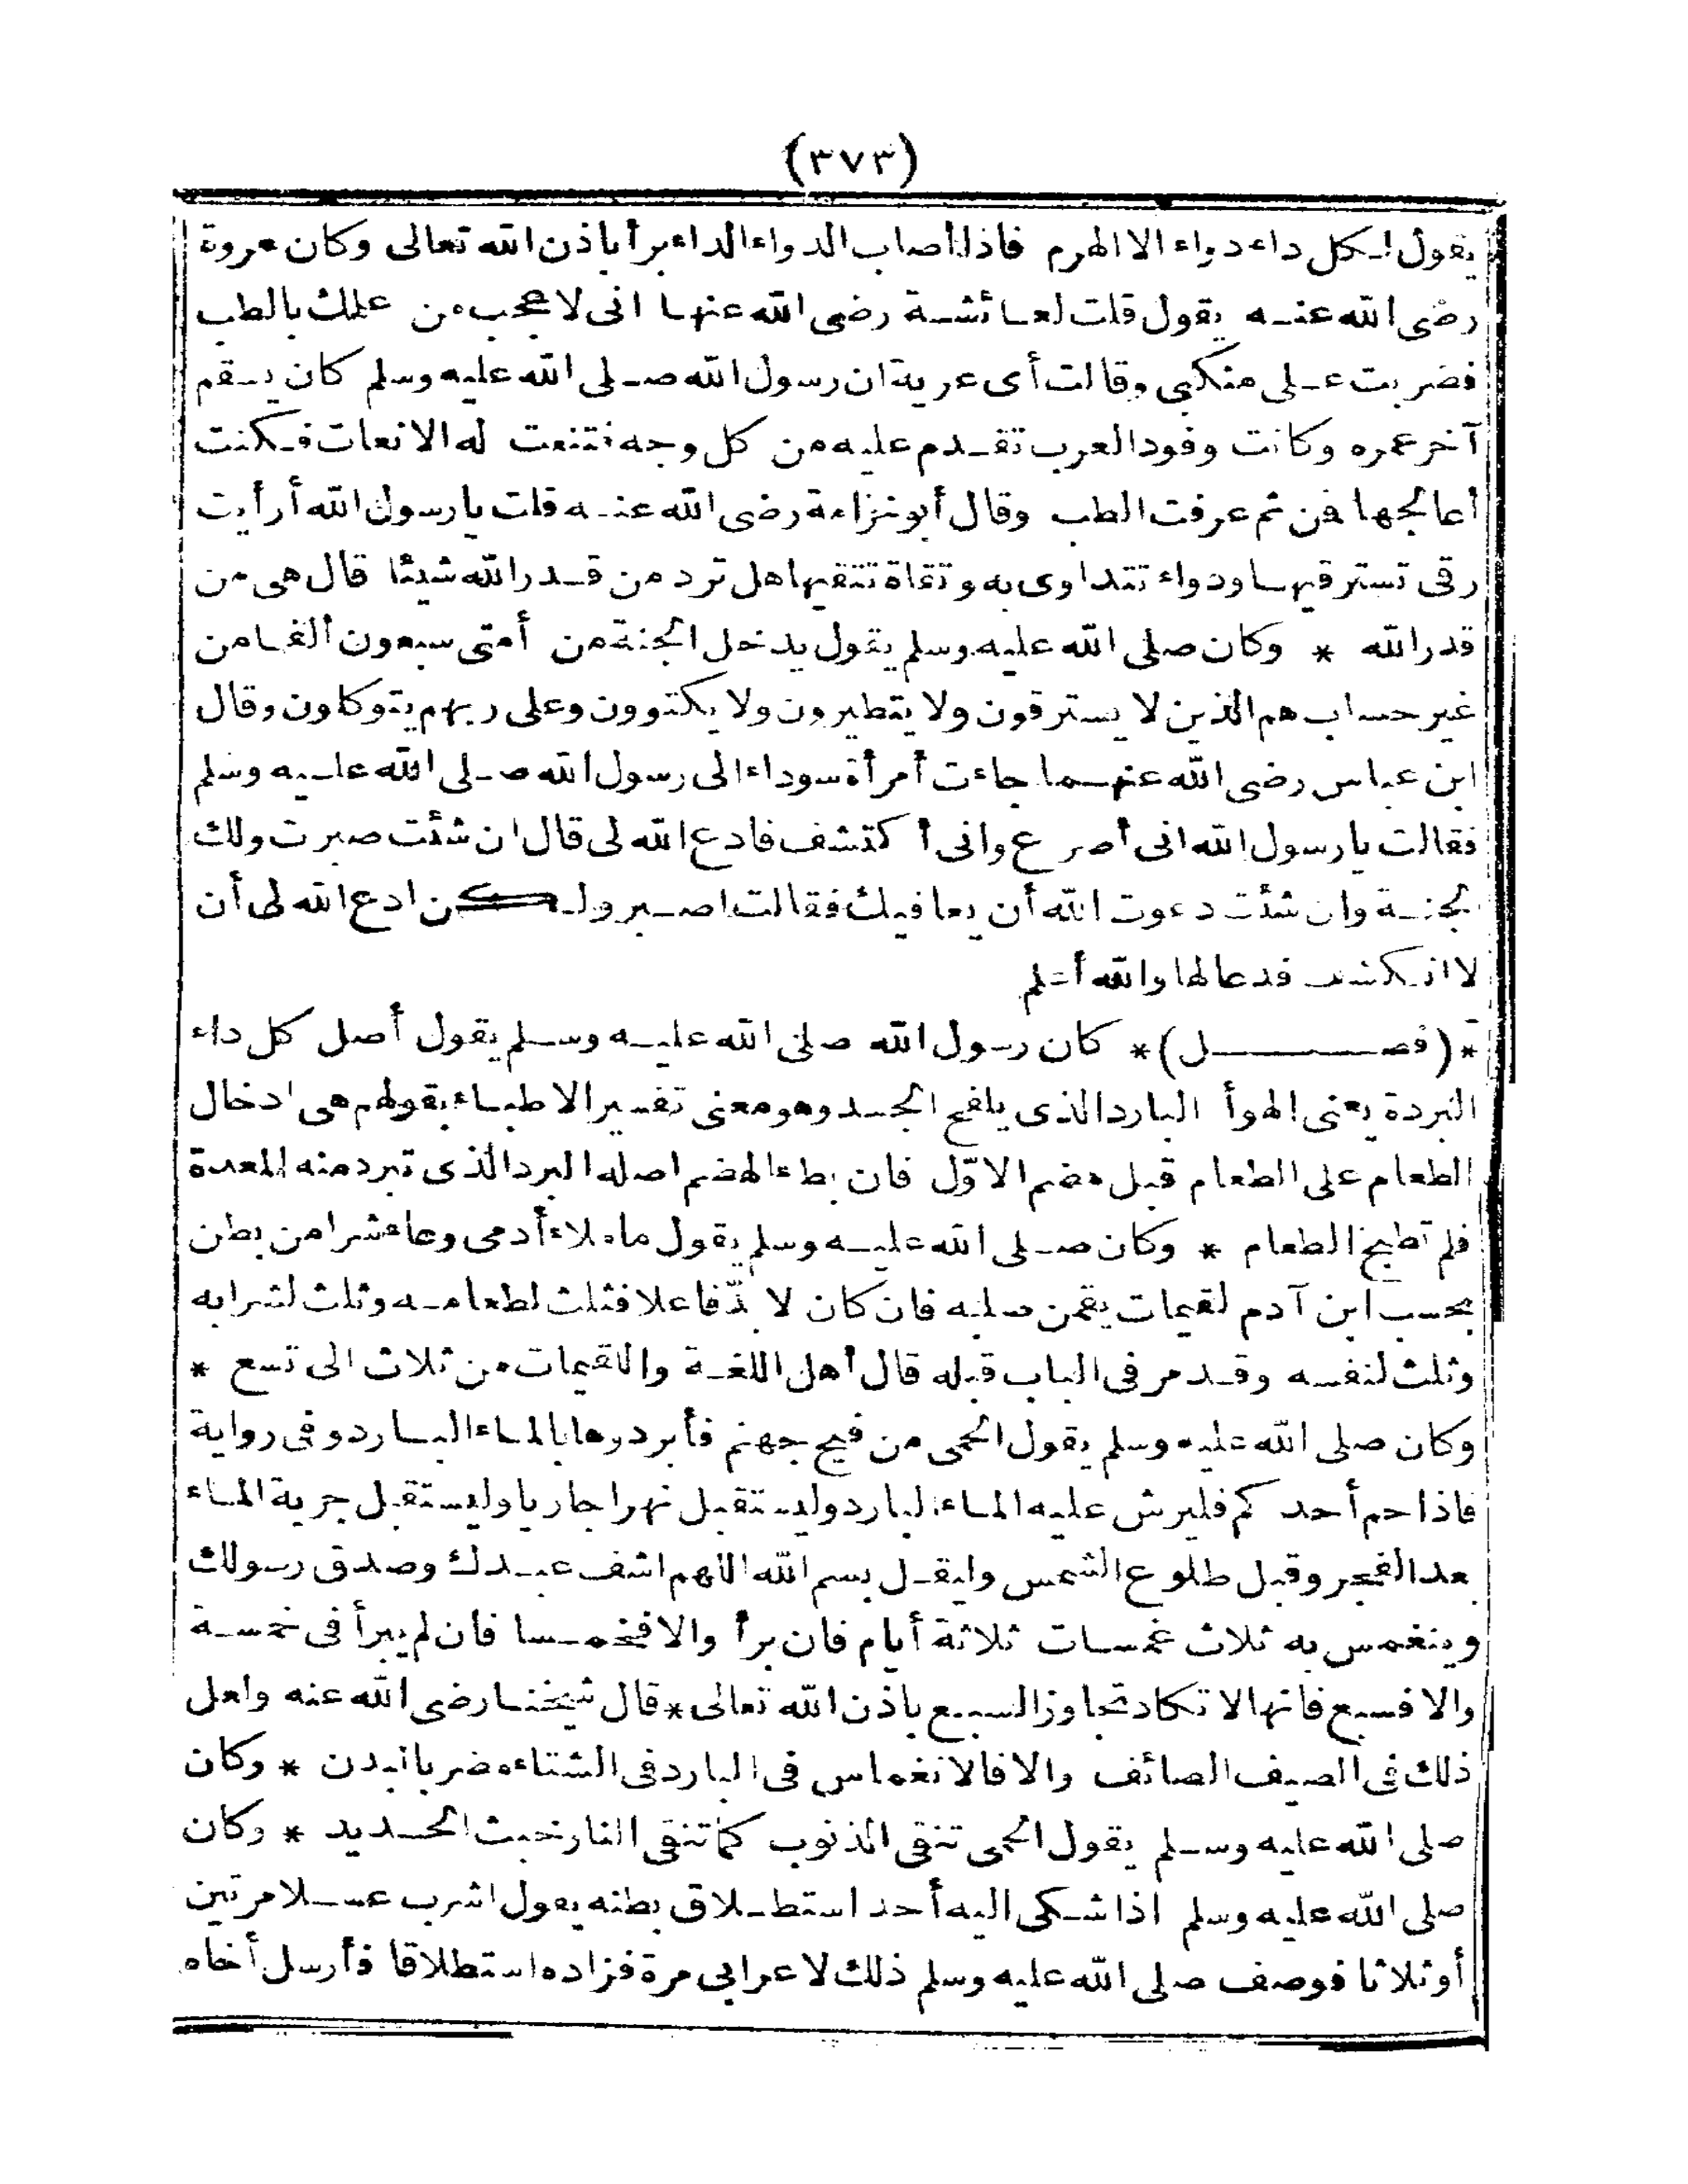 (٣٧٣)
يقول لكل داء دواء الا الهرم فاذا أصاب الدواء الداء برأ باذن الله تعالى وكان عروة
رضى الله عنه يقول قلت لعائشة رضى الله عنها انى لاعجب من علمك بالطب
فضربت على منكبى وقالت أى عرية ان رسول الله صلى الله عليه وسلم كان يسقم
آخر عمره وكانت وفود العرب تقدم عليه من كل وجه فتنعت له الانعات فكنت
أعالجها فمن ثم عرفت الطب وقال أبو خزامة رضى الله عنه قلت يا رسول الله أرأيت
رقى تسترقيها ودواء تتداوى به وتقاة تتقيها هل ترد من قدر الله شيئا قال هى من
قدر الله * وكان صلى الله عليه وسلم يقول يدخل الجنة من أمتى سبعون ألفا من
غير حساب هم الذين لا يسترقون ولا يتطيرون ولا يكتوون وعلى ربهم يتوكلون وقال
ابن عباس رضى الله عنهما جاءت أمرأة سوداء الى رسول الله صلى الله عليه وسلم
فقالت يا رسول الله انى أصرع وانى أكتشف فادع الله لى قال ان شئت صبرت ولك
الجنة وان شئت دعوت الله أن يعافيك فقالت اصبر ولكن ادع الله لى أن
لا انكشف فدعا لها والله أعلم
* (فصل) * كان رسول الله صلى الله عليه وسلم يقول أصل كل داء
البردة يعنى الهوأ البارد الذى يلفح الجسد وهو معنى تفسير الاطباء بقولهم هى ادخال
الطعام على الطعام قبل هضم الاوّل فان بطء الهضم اصله البرد الذى تبرد منه المعدة
فلم تطبخ الطعام * وكان صلى الله عليه وسلم يقول ما ملاء أدمى وعاء شرا من بطن
بحسب ابن آدم لقيمات يقمن صلبه فان كان لا بدّ فاعلا فثلث لطعامه وثلث لشرابه
وثلث لنفسه وقد مر فى الباب قبله قال أهل اللغة واللقيمات من ثلاث الى تسع *
وكان صلى الله عليه وسلم يقول الحمى من فيح جهنم فأبردوها بالماء البارد وفى رواية
فاذا حم أحدكم فليرش عليه الماء البارد وليستقبل نهرا جاريا وليستقبل جرية الماء
بعد الفجر وقبل طلوع الشمس وليقل بسم الله اللهم اشف عبدك وصدق رسولك
وينغمس به ثلاث غمسات ثلاثة أيام فان برأ والا فخمسا فان لم يبرأ فى خمسة
والا فسبع فانها لا تكاد تجاوز السبع باذن الله تعالى * قال شيخنا رضى الله عنه ولعل
ذلك فى الصيف الصائف والا فالانغماس فى البارد فى الشتاء مضر بالبدن * وكان
صلى الله عليه وسلم يقول الحمى تنقى الذنوب كما تنقى النار خبث الحديد * وكان
صلى الله عليه وسلم اذا شكى اليه أحد استطلاق بطنه يقول اشرب عسلا مرتين
أو ثلاثا فوصف صلى الله عليه وسلم ذلك لاعرابى مرة فزاده استطلاقا فأرسل أخاه